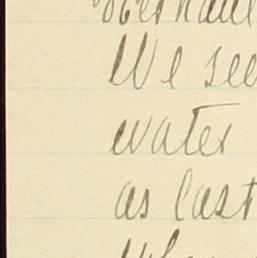 We see
water
as last